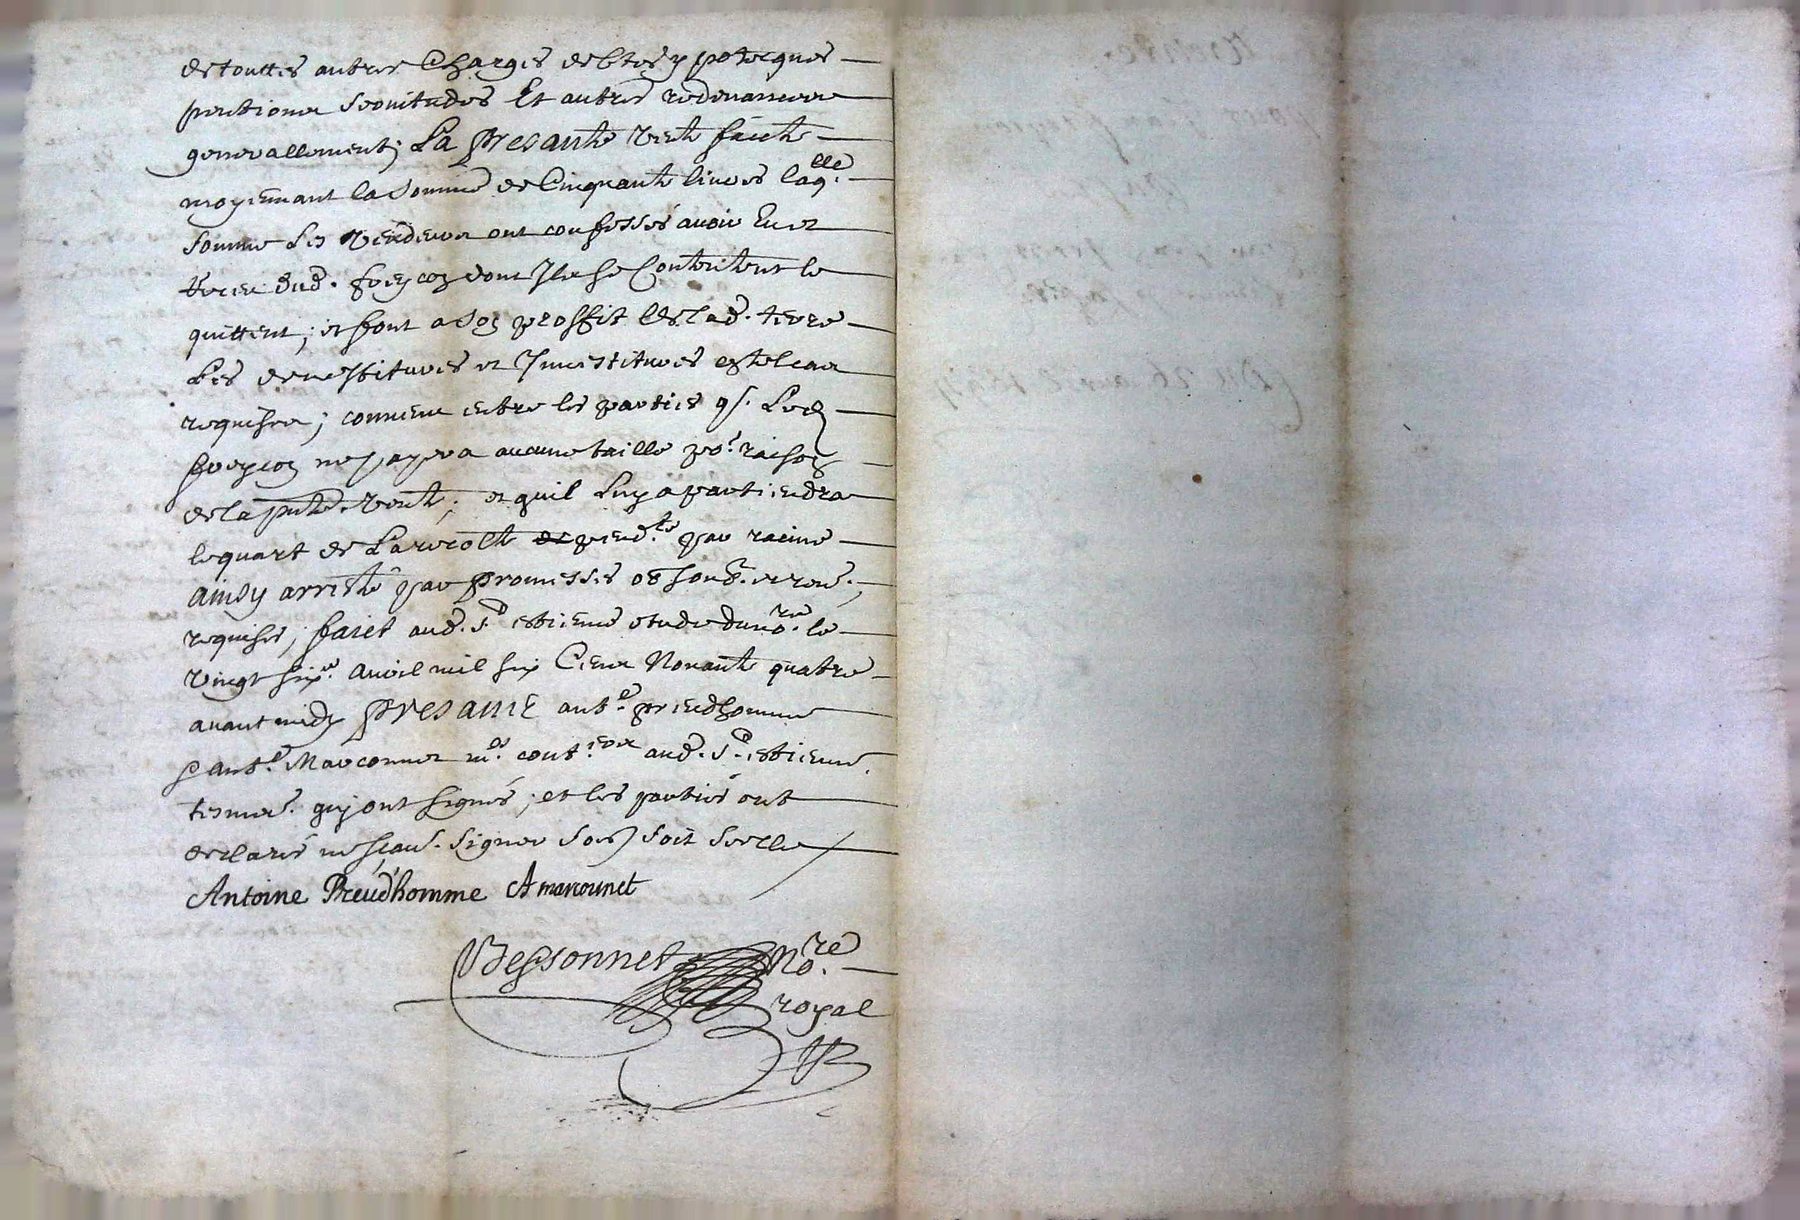 de touttes autres Charges debtes ypotecques
pentions servitudes Et autres redevances
generallement; La presante vente faicte
moyennant la Somme de Cinquante livres laq.lle
Somme Les vendeurs ont confessés avoir Eu et
receu dud. freycon dont Ils se Contentent le
quittent; et font a Son proffit de lad. terre
Les devestitures et Investitures en tel cas
requises; convenu entre les parties q. Led
freycon ne payera aucune taille po.r raison
de la p.nte vente; et quil Luy apartiendra
le quart de La recolte pend.te par racine
ainsy arresté par promesses ob. Soub. et ren.
requises, faict aud. S.t estienne estude du no.re le
vingt six.e avril mil six Cens Nonante quatre
avant midy presant ant.e preudhomme
& ant.e Marconnet m.ds cout.iers aud. S.t estienne
tesmoins. quj ont signés; et les parties ont
declarés ne scav. signer Soit Scelle
Antoine Preud'homme A marconnet
Bessonnet No.re
royal